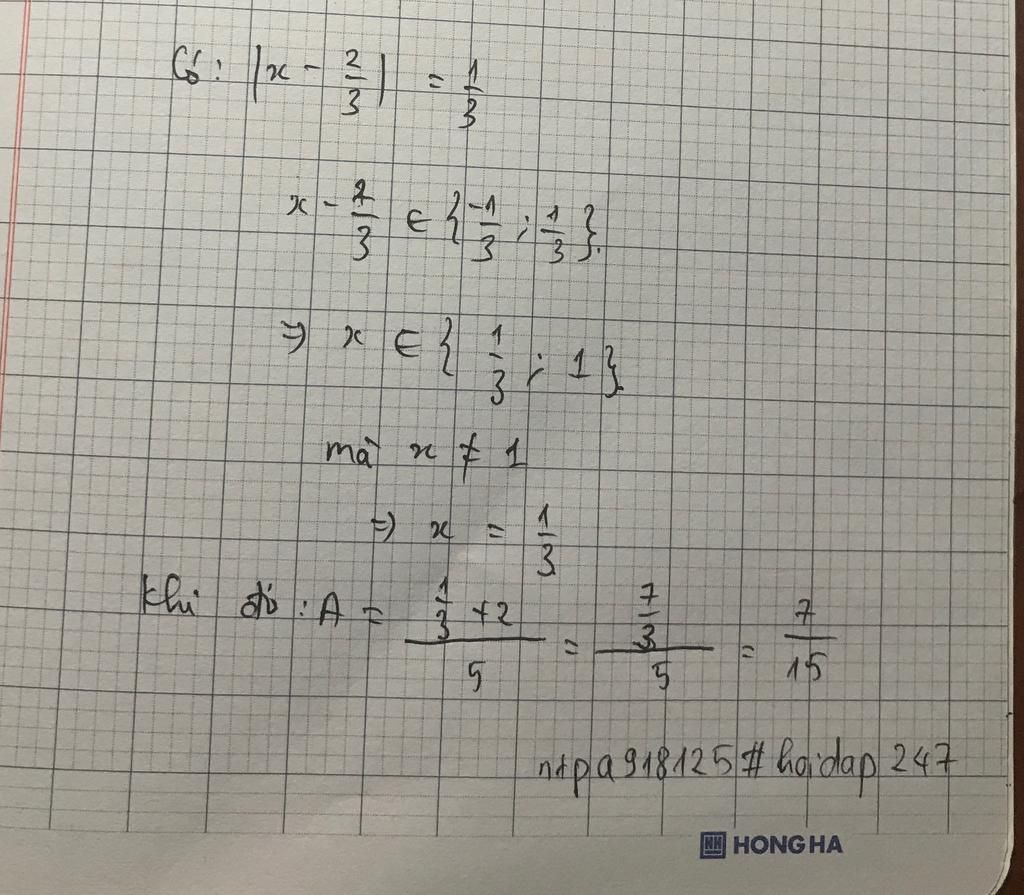 Có: |x - 2/3| = 1/3
x - 2/3 ∈ {-1/3 ; 1/3}.
=> x ∈ {1/3 ; 1}
mà x ≠ 1
=> x = 1/3
Khi đó : A = (1/3 + 2)/5 = (7/3)/5 = 7/15
ntpa918125#hoidap247
HH HONG HA